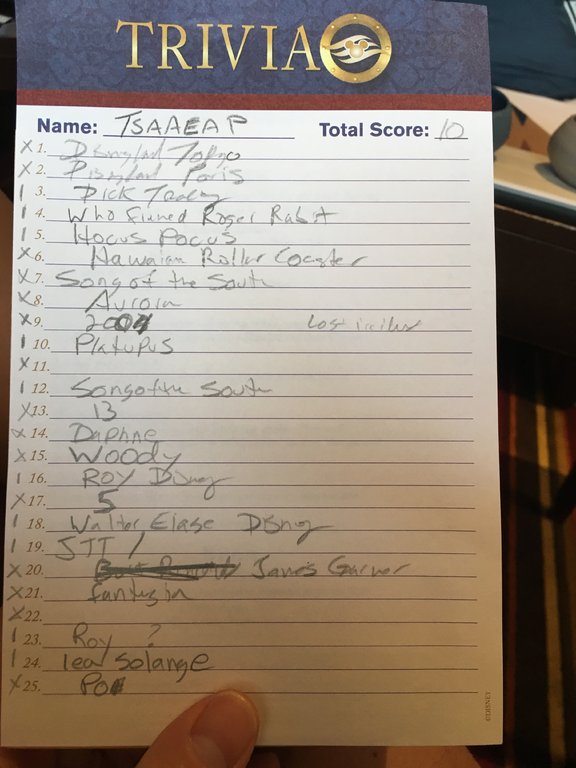 TRIVIA
Name: TSAAEAP Total Score: 10
x 1. Disneyland Tokyo
x 2. Disneyland Paris
1 3. Dick Tracy
1 4. Who Framed Roger Rabit
1 5. Hocus Pocus
x 6. Hawaiian Roller Coaster
x 7. Song of the South
x 8. Aurora
x 9. 2004
1 10. Platupus
x 11.
1 12. Song of the South
x 13. 13
x 14. Daphne
x 15. Woody
1 16. Roy Disney
x 17. 5
1 18. Walter Elase Disney
1 19. JTT /
x 20. James Garner
x 21. fantasia
x 22.
1 23. Roy ?
1 24. lea Solange
x 25. Po
©DISNEY